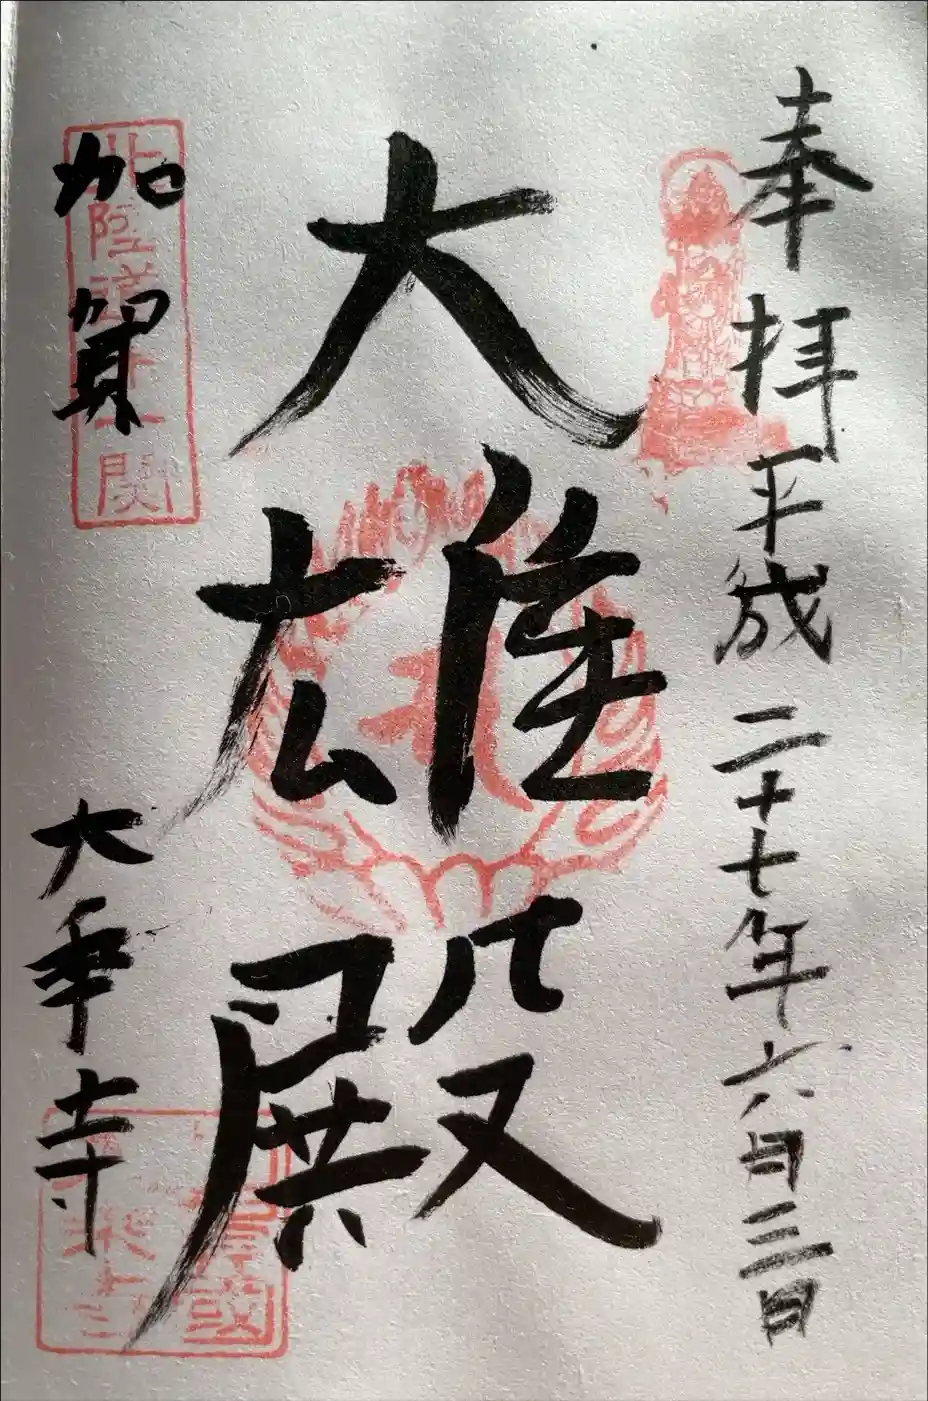 奉拝 平成二十七年六月三日
大雄殿
加賀 大乗寺